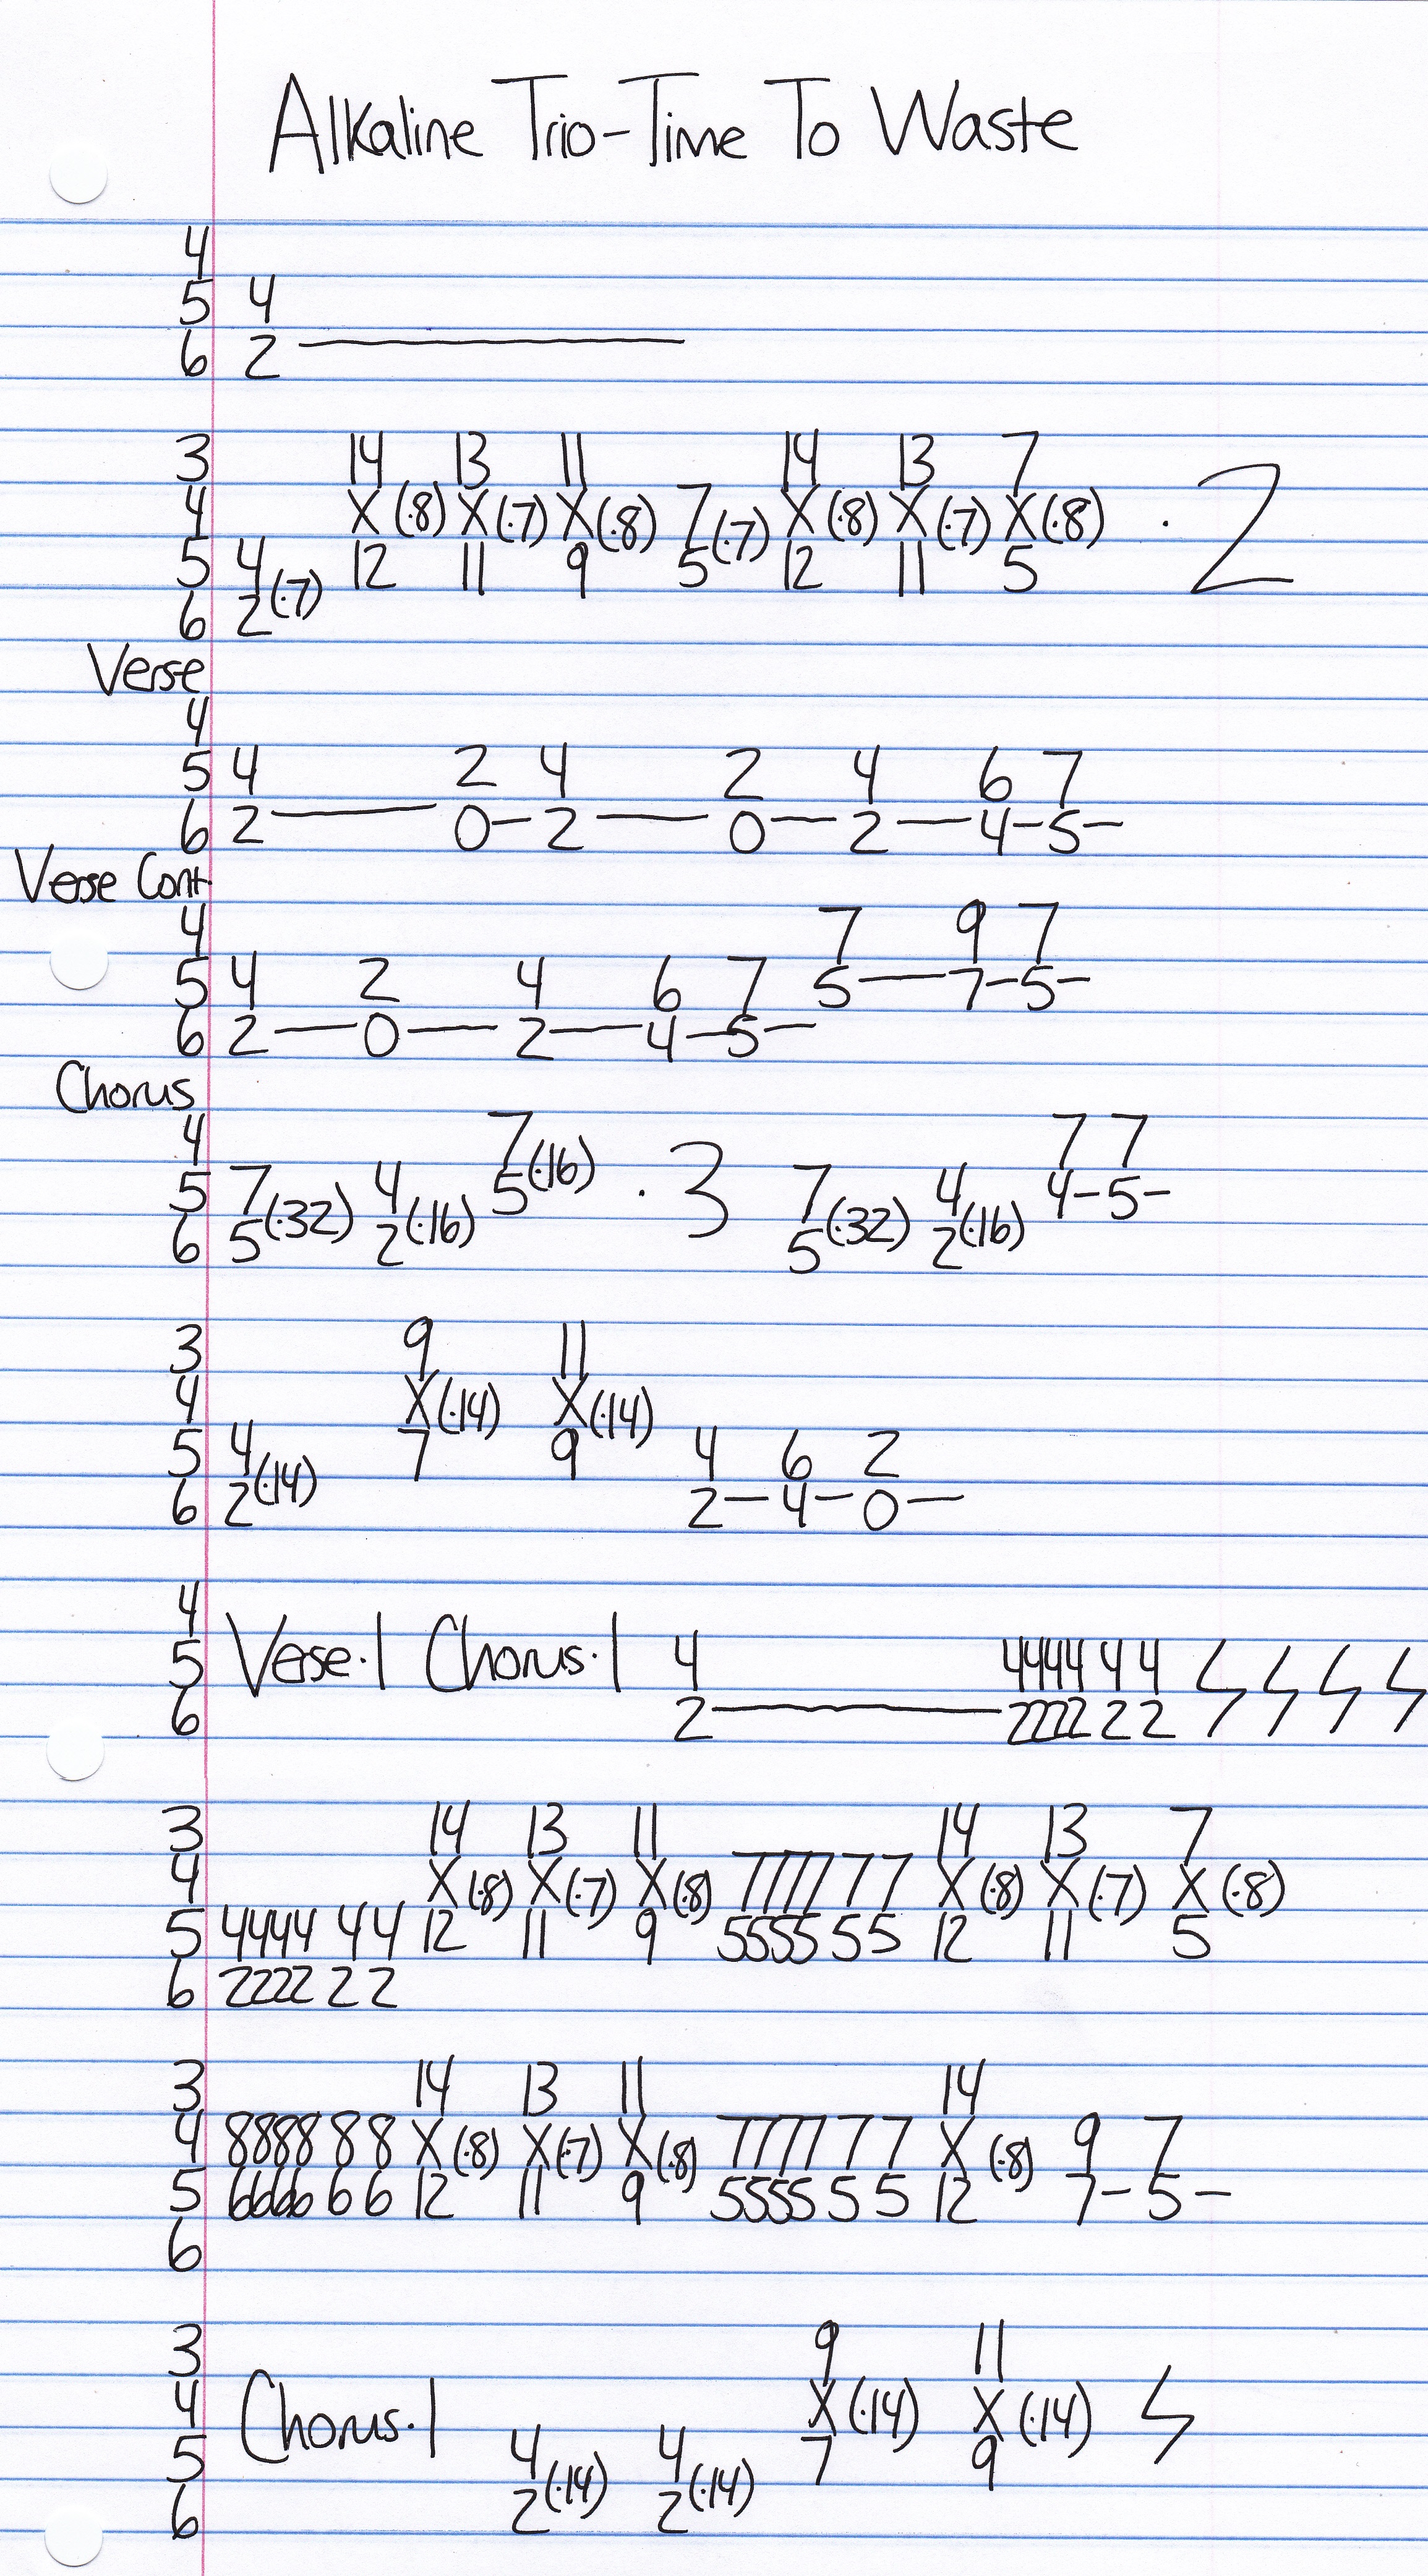 Alkaline Trio-Time To Waste
4
5 4
6 2 ————
3 14 13 11 14 13 7
4 X (·8) X (·7) X (·8) 7 (·7) X (·8) X (·7) X (·8) · 2
5 4 (·7) 12 11 9 5 12 11 5
6 2
Verse
4
5 4 2 4 2 4 6 7
6 2 —— 0 – 2 —— 0 — 2 — 4 – 5 –
Verse Cont.
4 7 9 7
5 4 2 4 6 7 5 — 7 – 5 –
6 2 — 0 — 2 — 4 – 5 –
Chorus
4 7 (·16) 7 7
5 7 (·32) 4 (·16) 5 · 3 7 (·32) 4 (·16) 4 – 5 –
6 5 2 5 2
3 9 11
4 X (·14) X (·14)
5 4 (·14) 7 9 4 6 2
6 2 2 – 4 – 0 –
4
5 Verse·1 Chorus·1 4 4444 4 4
6 2 ———— 2222 2 2
3 14 13 11 14 13 7
4 X (·8) X (·7) X (·8) 7777 7 7 X (·8) X (·7) X (·8)
5 4444 4 4 12 11 9 5555 5 5 12 11 5
6 2222 2 2
3 14 13 11 14
4 8888 8 8 X (·8) X (·7) X (·8) 7777 7 7 X (·8) 9 7
5 6666 6 6 12 11 9 5555 5 5 12 7 – 5 –
6
3 9 11
4 Chorus·1 X (·14) X (·14)
5 4 (·14) 4 (·14) 7 9
6 2 2